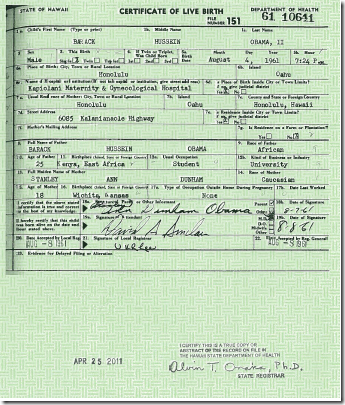 STATE OF HAWAII CERTIFICATE OF LIVE BIRTH DEPARTMENT OF HEALTH
FILE NUMBER 151 61 10641
1a. Child's First Name (Type or print) 1b. Middle Name 1c. Last Name
BARACK HUSSEIN OBAMA, II
2. Sex 3. This Birth 4. If Twin or Triplet, Was Child Born 5a. Birth Date Month Day Year 5b. Hour
Male Single Twin Triplet 1st 2nd 3rd August 4, 1961 7:24 P.
6a. Place of Birth: City, Town or Rural Location 6b. Island
Honolulu Oahu
6c. Name of Hospital or Institution (If not in hospital or institution, give street address) 6d. Is Place of Birth Inside City or Town Limits?
Kapiolani Maternity & Gynecological Hospital
7a. Usual Residence of Mother: City, Town or Rural Location 7b. Island 7c. County and State or Foreign Country
Honolulu Oahu Honolulu, Hawaii
7d. Street Address 7e. Is Residence Inside City or Town Limits?
6085 Kalanianaole Highway
7f. Mother's Mailing Address 7g. Is Residence on a Farm or Plantation?
8. Full Name of Father 9. Race of Father
BARACK HUSSEIN OBAMA African
10. Age of Father 11. Birthplace 12a. Usual Occupation 12b. Kind of Business or Industry
25 Kenya, East Africa Student University
13. Full Maiden Name of Mother 14. Race of Mother
STANLEY ANN DUNHAM Caucasian
15. Age of Mother 16. Birthplace 17a. Type of Occupation Outside Home During Pregnancy 17b. Date Last Worked
18 Wichita, Kansas None
I certify that the above stated information is true and correct to the best of my knowledge. 18a. Signature of Parent or Other Informant Parent Other 18b. Date of Signature
Dunham Obama 8-7-61
I hereby certify that this child was born alive on the date and hour stated above. 19a. Signature of Attendant M.D. D.O. Midwife Other 19b. Date of Signature
David A Sinclair 8-8-61
20. Date Accepted by Local Reg. 21. Signature of Local Registrar 22. Date Accepted by Reg. General
AUG -8 1961 U K Lee AUG -8 1961
23. Evidence for Delayed Filing or Alteration
APR 25 2011
I CERTIFY THIS IS A TRUE COPY OR
ABSTRACT OF THE RECORD ON FILE IN
THE HAWAII STATE DEPARTMENT OF HEALTH
Alvin T. Onaka, Ph.D.
STATE REGISTRAR